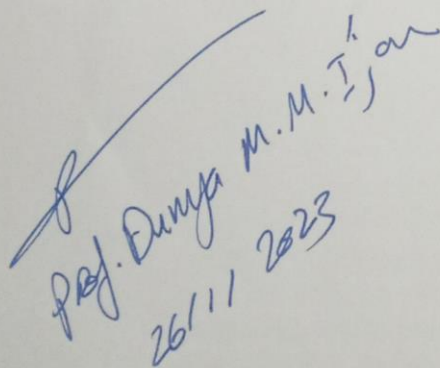 Prof. Dunya M. M.
26/11 2023